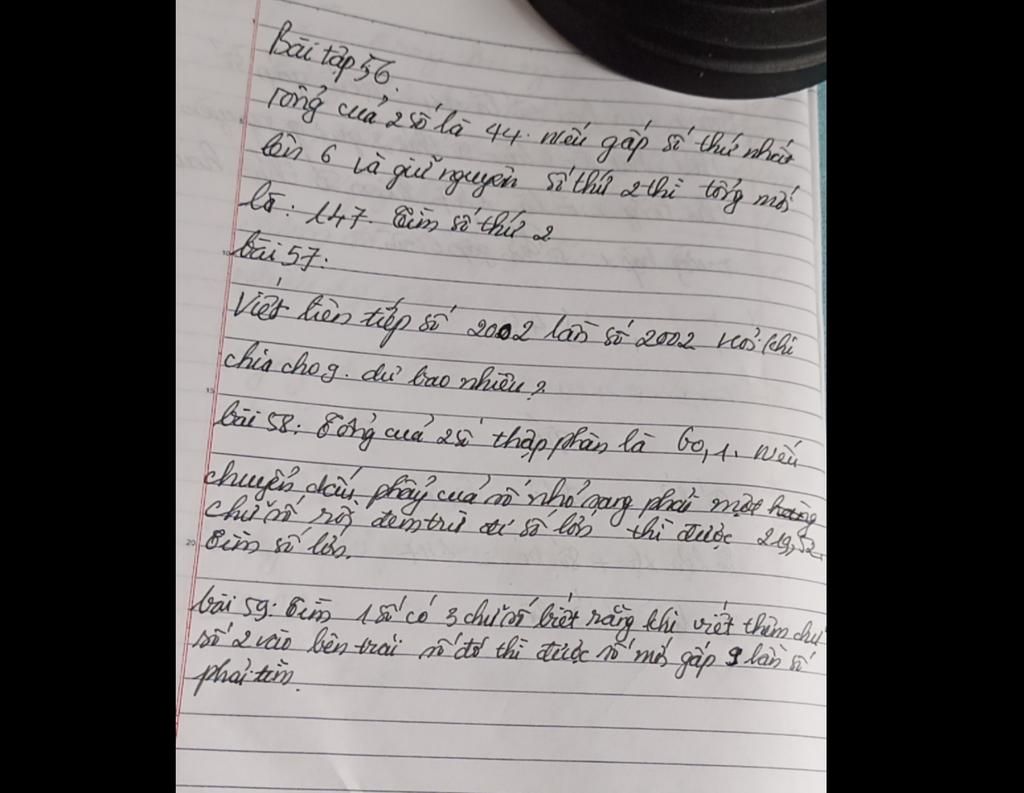 Bài tập 56.
Tổng của 2 số là 44. nếu gấp số thứ nhất
lên 6 và giữ nguyên số thứ 2 thì tổng mới
là: 147. Tìm số thứ 2
bài 57:
Viết liên tiếp số 2002 lần số 2002 khi
chia cho 9. dư bao nhiêu?
bài 58: Tổng của 2 số thập phân là 60,1. nếu
chuyển dấu phẩy của số nhỏ sang phải một hàng
chữ số rồi đem trừ đi số lớn thì được 219,52.
Tìm số lớn.
bài 59: Tìm 1 số có 3 chữ số biết rằng khi viết thêm chữ
số 2 vào bên trái số đó thì được số mới gấp 9 lần số
phải tìm.